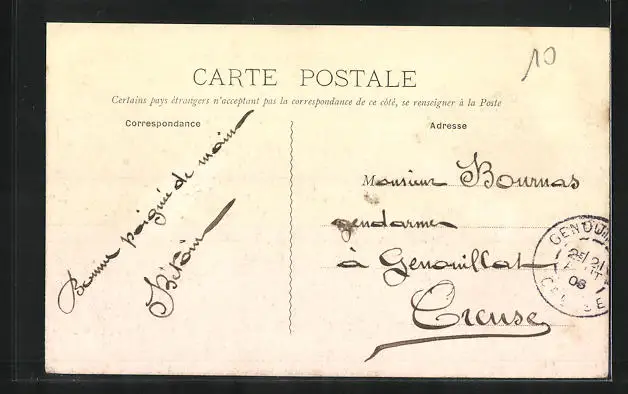 10
CARTE POSTALE
Certains pays étrangers n'acceptent pas la correspondance de ce côté, se renseigner à la Poste
Correspondance
Adresse
Bonne poignée de main
Monsieur Bournas
gendarme
à Genouillat
Creuse
GENOUI
2E
AOUT
08